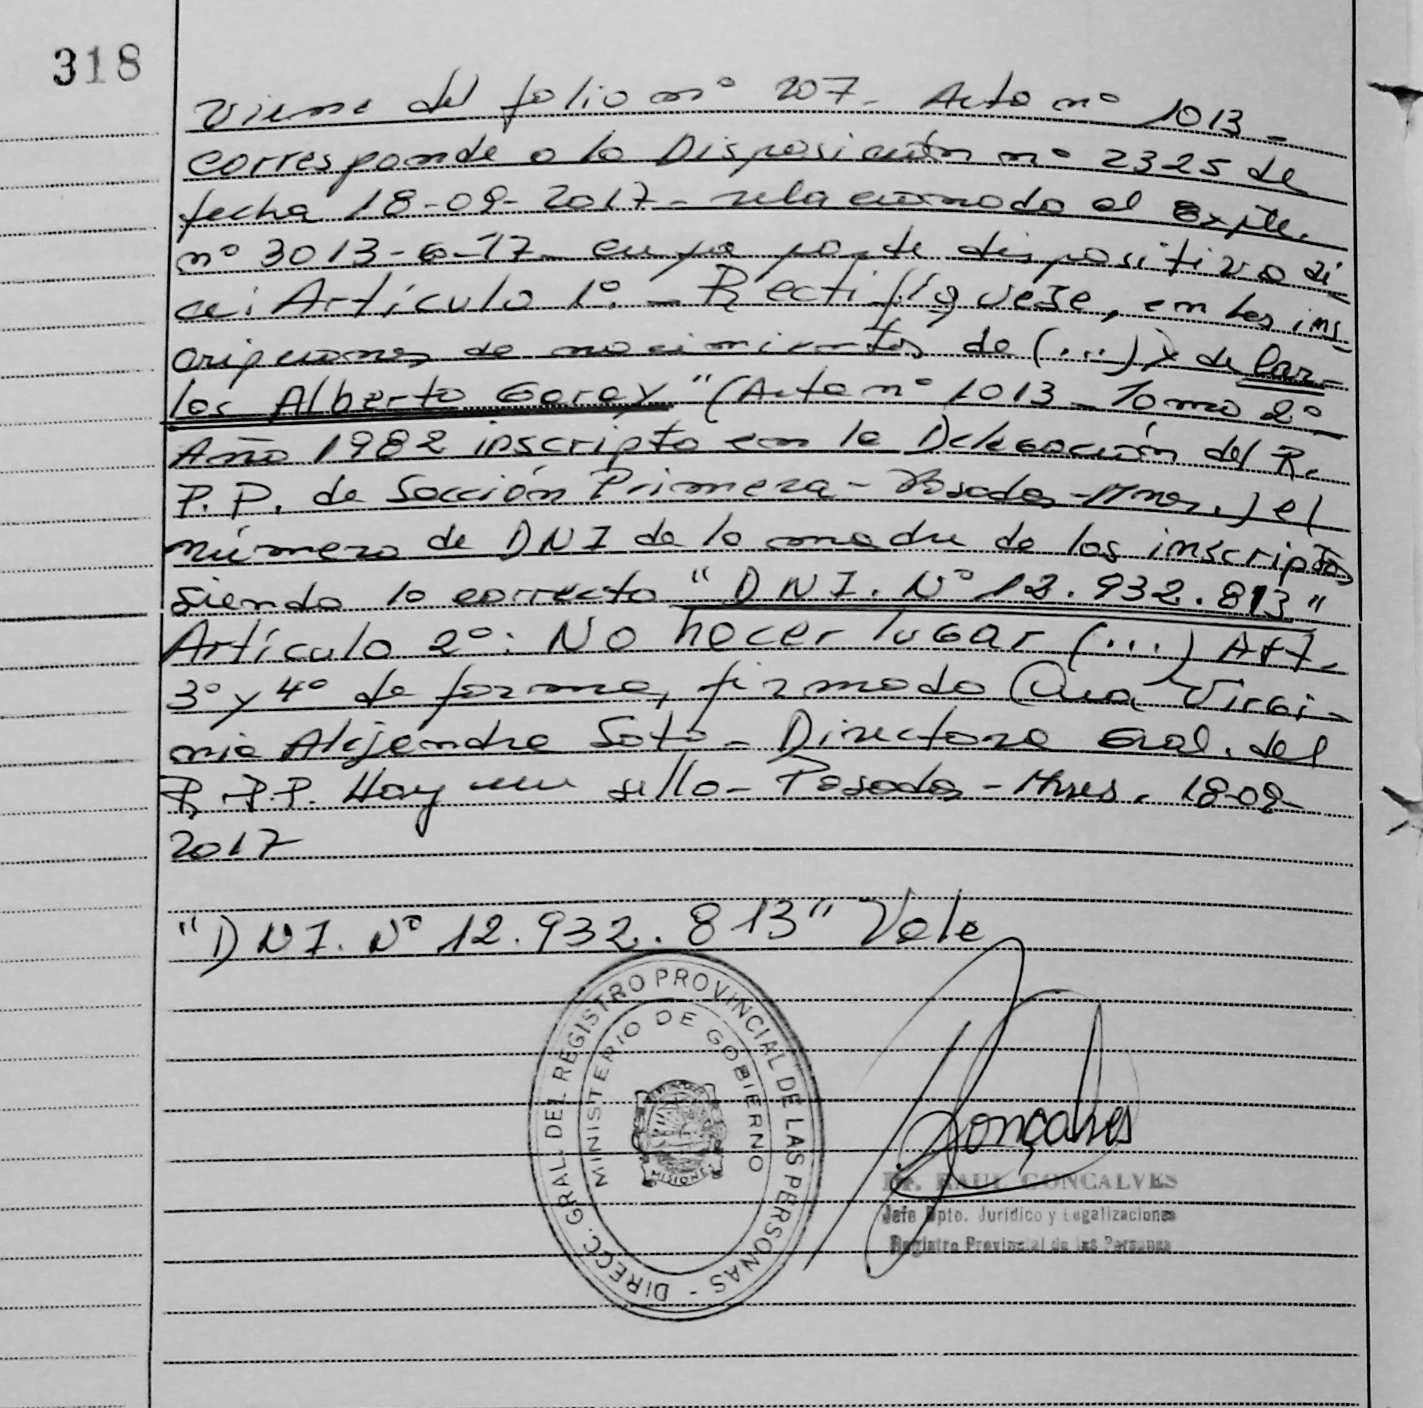 318
Viene del folio nº 207 - Acta nº 1013 -
corresponde a la Disposición nº 2325 de
fecha 18-09-2017 - relacionado al Expte.
nº 3013-G-17 - cuya parte dispositiva di-
ce: Artículo 1º. - Rectifíquese, en las ins-
cripciones de nacimientos de (...) y de Car-
los Alberto Garay" (Acta nº 1013 - Tomo 2º -
Año 1982 inscripto en la Delegación del R.
P.P. de Sección Primera - Posadas - Mnes.) el
número de DNI de la madre de los inscriptos
siendo lo correcto "DNI. Nº 12.932.813"
Artículo 2º: No hacer lugar (...) Art.
3º y 4º de forma, firmado Ana Virgi-
nia Alejandra Soto - Directora Gral. del
R.P.P. Hay un sello - Posadas - Mnes. 18-09-
2017
"DNI. Nº 12.932.813" Vale
DIRECC. GRAL. DEL REGISTRO PROVINCIAL DE LAS PERSONAS -
MINISTERIO DE GOBIERNO
MISIONES
Gonçalves
Dr. RAUL GONCALVES
Jefe Dpto. Jurídico y Legalizaciones
Registro Provincial de las Personas